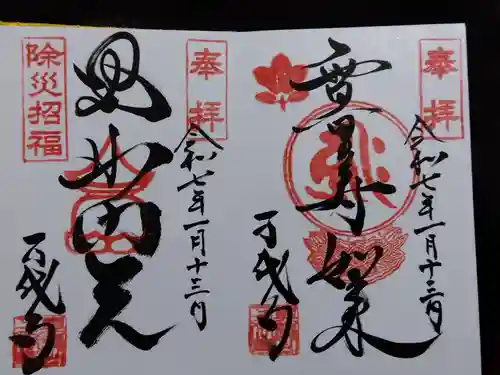 奉拝
令和七年一月十三日
無量寿如来
万代寺
奉拝
令和七年一月十三日
毘沙門天
除災招福
万代寺